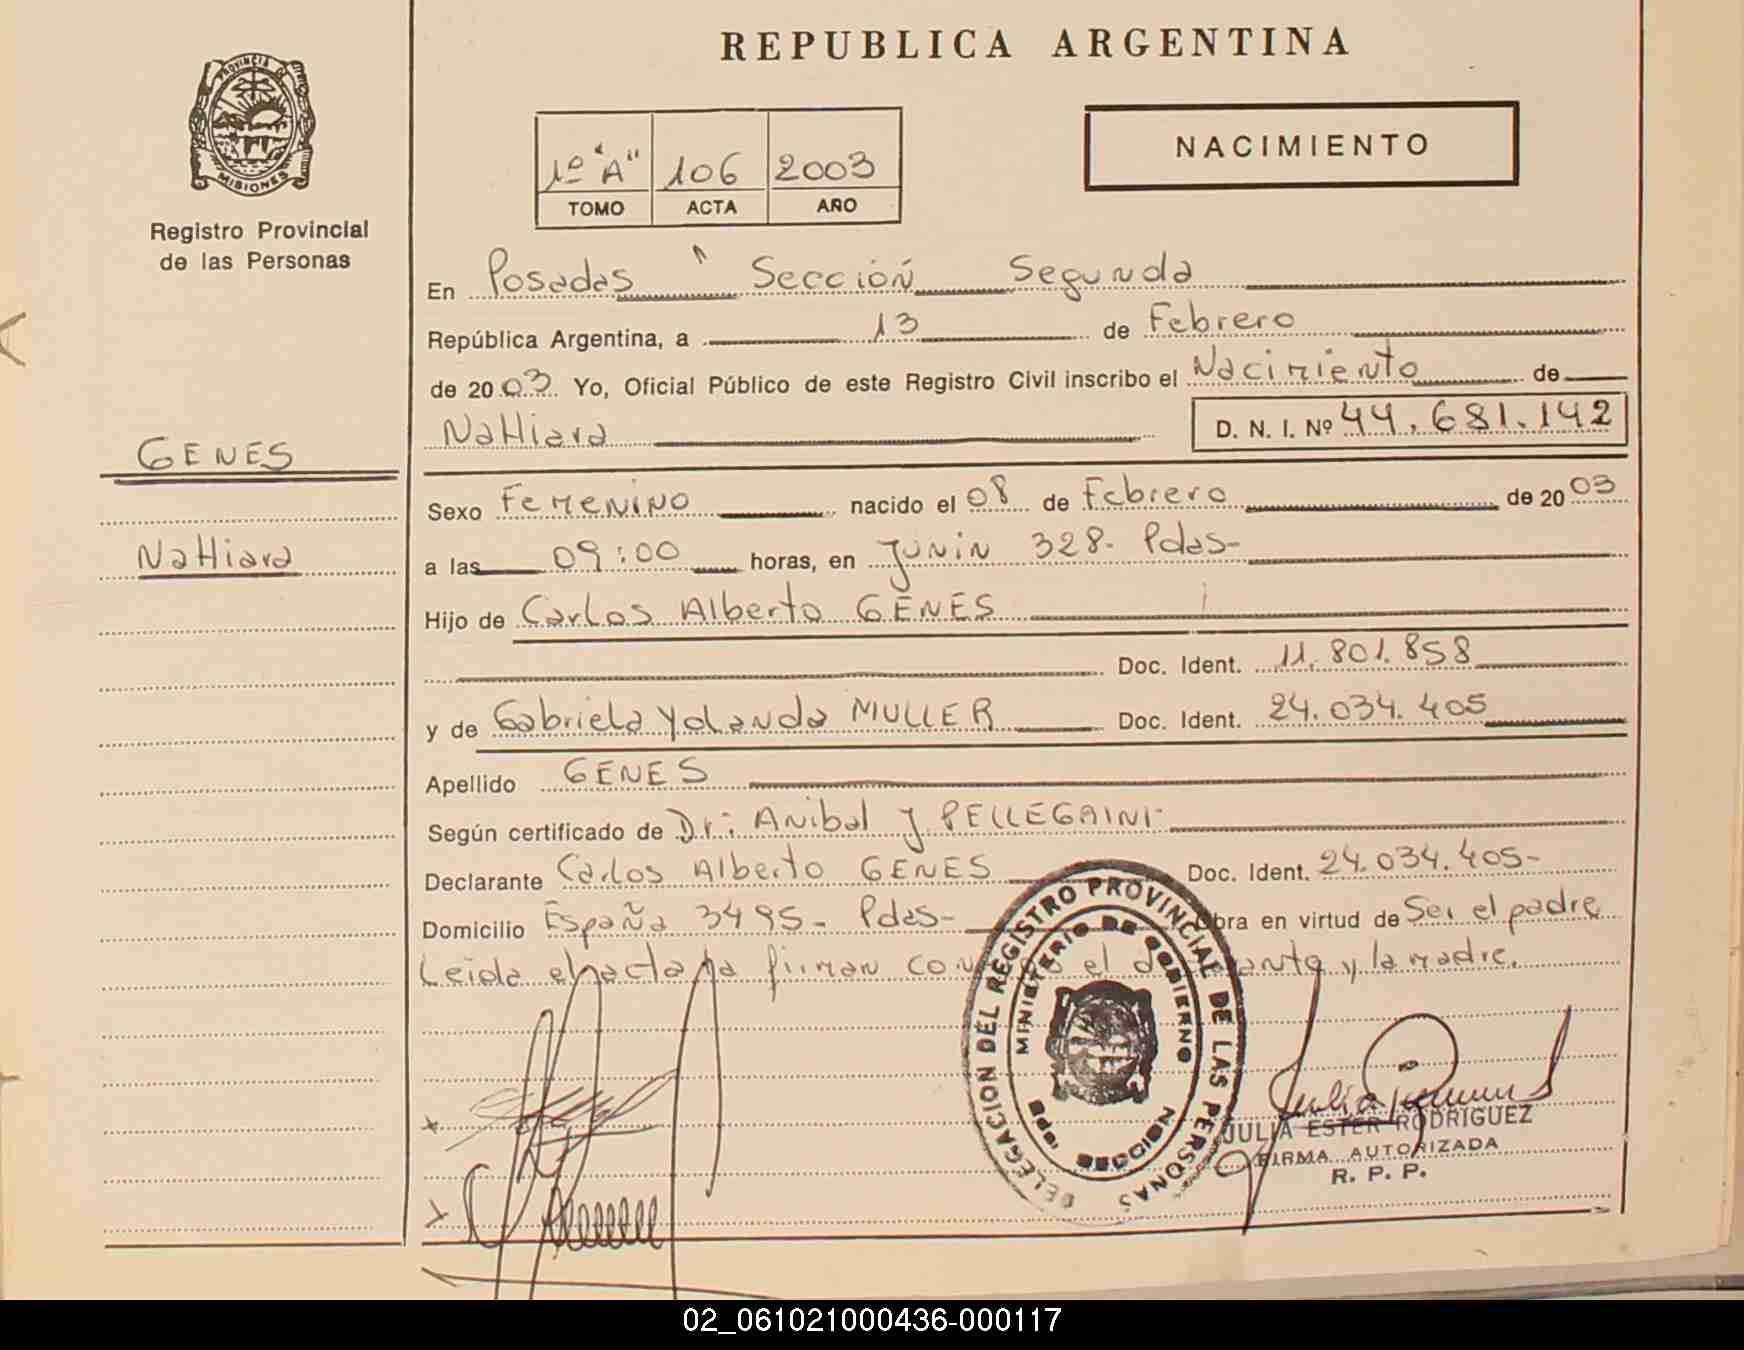 REPUBLICA ARGENTINA
PROVINCIA DE
MISIONES
Registro Provincial
de las Personas
1º "A" 106 2003
TOMO ACTA AÑO
NACIMIENTO
En Posadas Sección Segunda
República Argentina, a 13 de Febrero
de 2003 Yo, Oficial Público de este Registro Civil inscribo el Nacimiento de
Nahiara D. N. I. Nº 44.681.142
GENES
Nahiara
Sexo Femenino nacido el 08 de Febrero de 2003
a las 09:00 horas, en Junin 328- Pdas-
Hijo de Carlos Alberto GENES
Doc. Ident. 11.801.858
y de Gabriela Yolanda MULLER Doc. Ident. 24.034.405
Apellido GENES
Según certificado de Dr: Anibal J PELLEGRINI-
Declarante Carlos Alberto GENES Doc. Ident. 24.034.405-
Domicilio España 3495- Pdas- Obra en virtud de Ser el padre
Leida el acta la firman el y la madre.
DELEGACION DEL REGISTRO PROVINCIAL DE LAS PERSONAS
MINISTERIO DE GOBIERNO
Pdas. MISIONES
JULIA ESTER RODRIGUEZ
FIRMA AUTORIZADA
R. P. P.
02_061021000436-000117